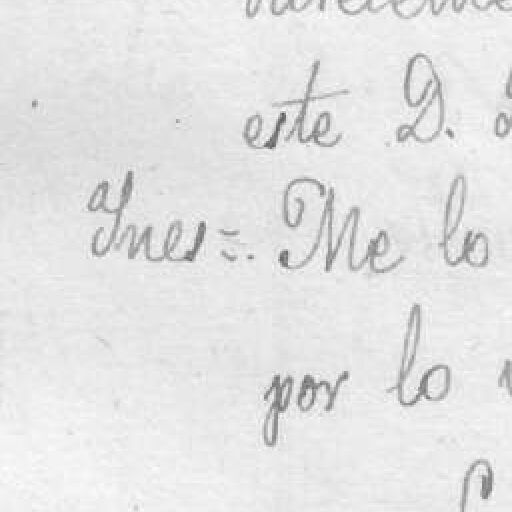 este D.
Ines=. Me lo
por lo